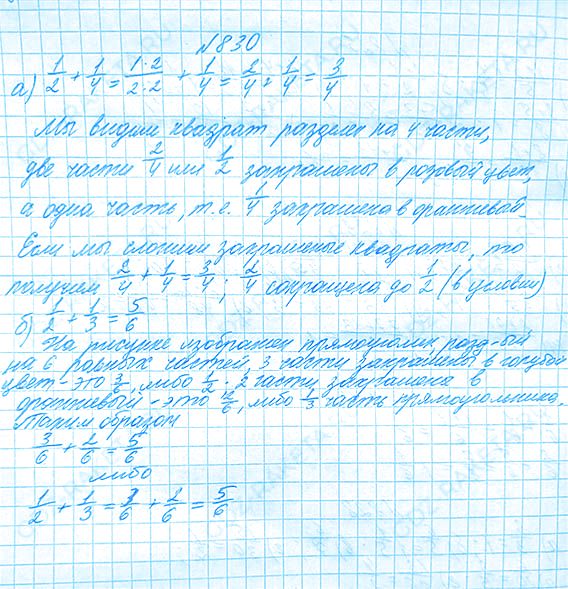 №830
а) 1/2 + 1/4 = 1·2/2·2 + 1/4 = 2/4 + 1/4 = 3/4
Мы видим квадрат разделен на 4 части,
две части 2/4 или 1/2 закрашены в розовый цвет,
а одна часть, т.е. 1/4 закрашена в оранжевый.
Если мы сложим закрашеные квадраты, то
получим 2/4 + 1/4 = 3/4 ; 2/4 сокращена до 1/2 (в условии)
б) 1/2 + 1/3 = 5/6
На рисунке изображен прямоуголик разд-ый
на 6 равных частей, 3 части закрашены в голубой
цвет - это 3/6, либо 1/2 . 2 части закрашена в
оранжевый - это 2/6, либо 1/3 часть прямоугольника.
Таким образом
3/6 + 2/6 = 5/6
либо
1/2 + 1/3 = 3/6 + 2/6 = 5/6